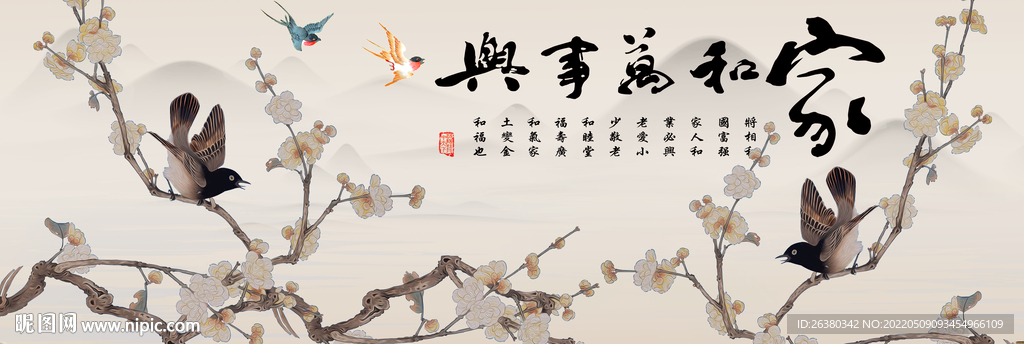 家和萬事興
將相和
國富强
家人和
業必興
老愛小
少敬老
和睦堂
福壽廣
和氣家
土變金
和福也
昵图网 www.nipic.com
ID:26380342 NO:20220509093454966109